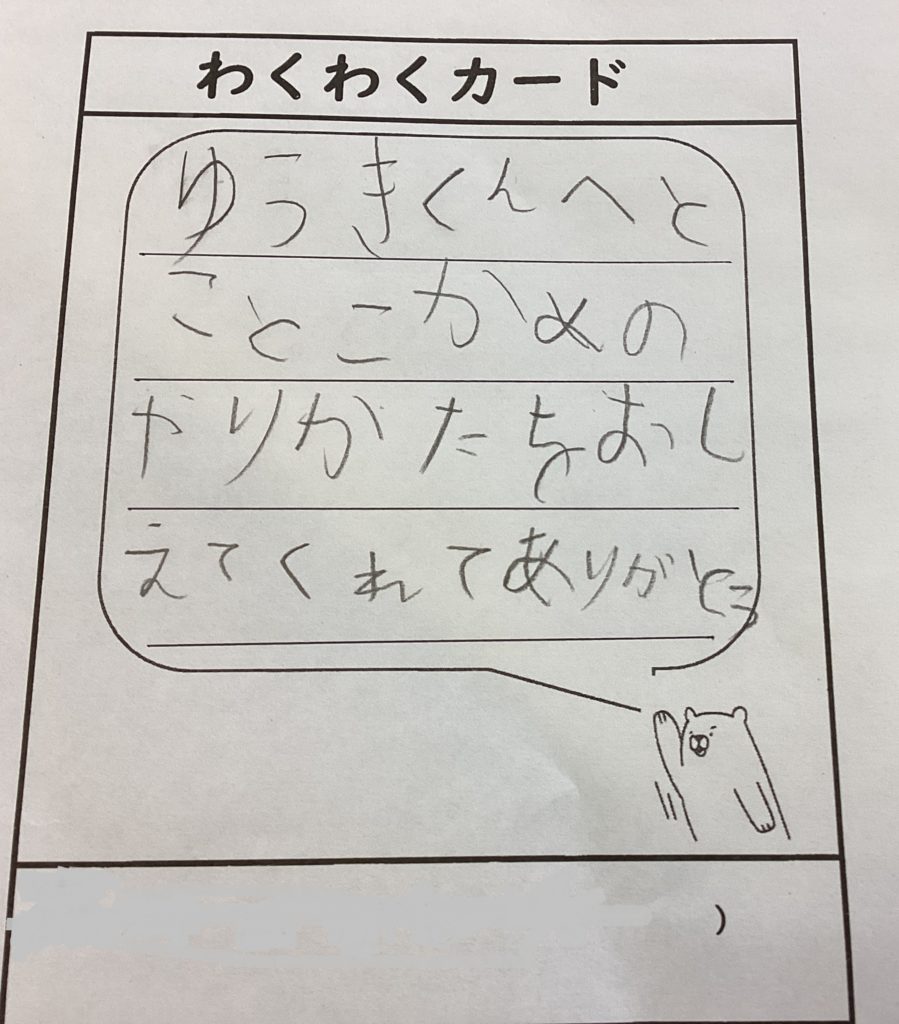 わくわくカード
ゆうきくんへと
ことこかめの
やりかたをおし
えてくれてありがとう
)